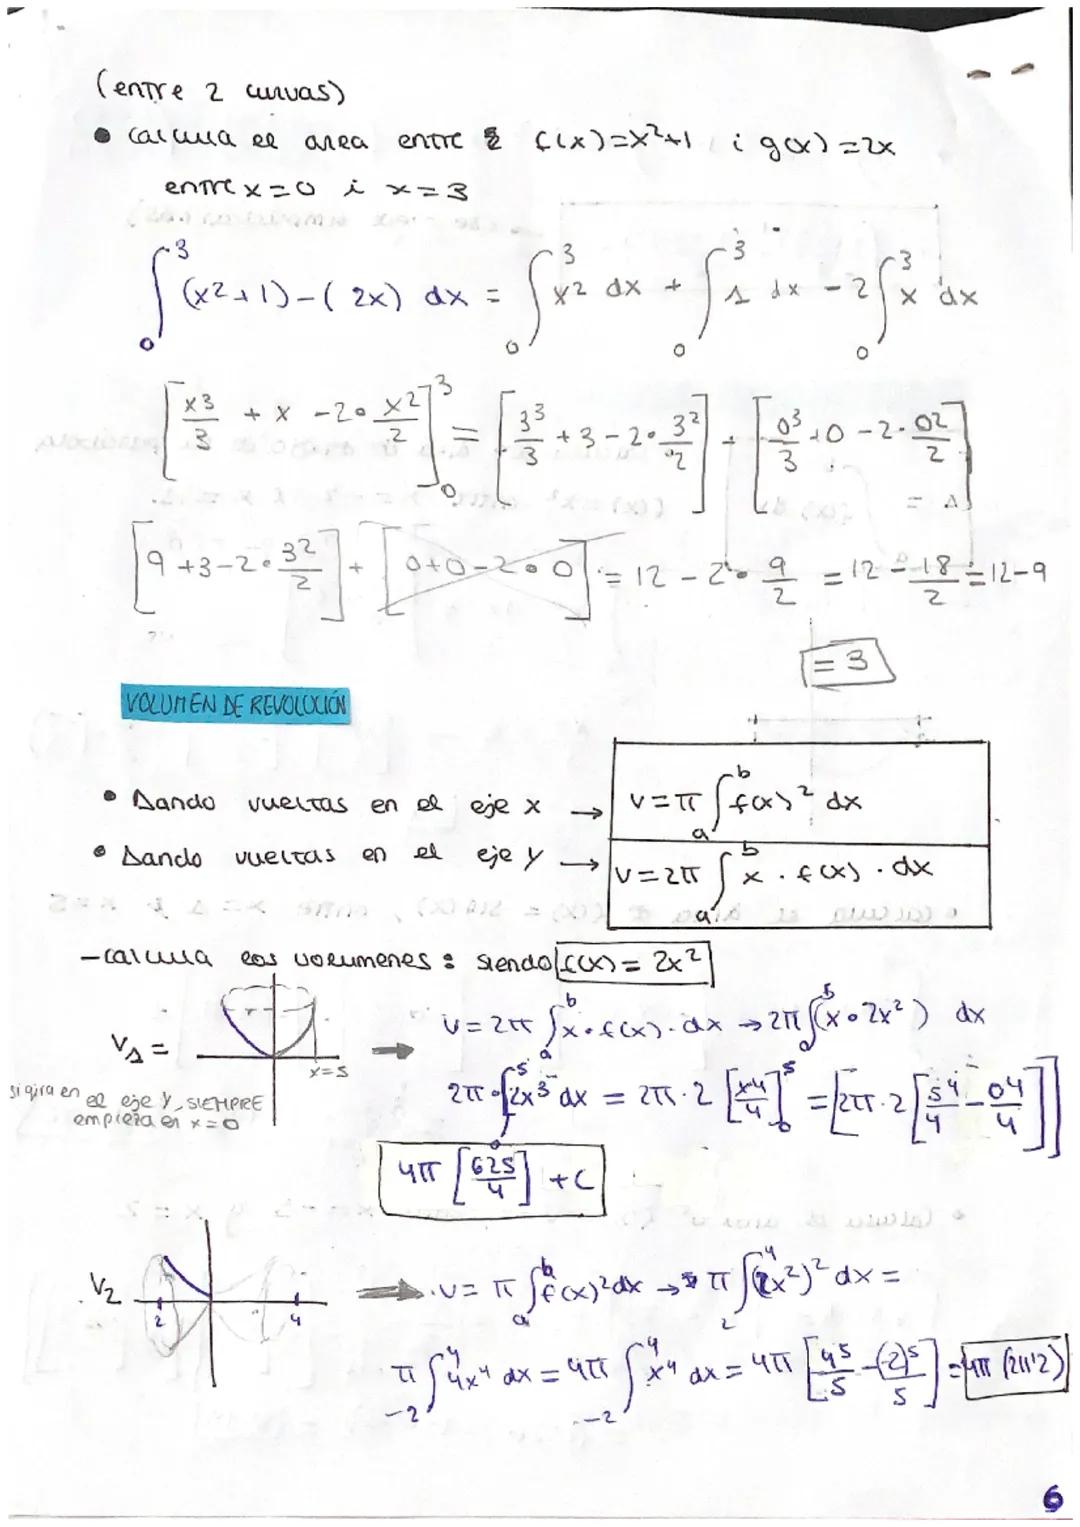 (entre 2 curvas)
• calcula el area entre f(x)=x²+1 i g(x)=2x
entre x=0 i x=3
∫₀³ (x²+1)-(2x) dx = ∫₀³ x² dx + ∫₀³ 1 dx - 2∫₀³ x dx
[x³/3 + x - 2·x²/2]₀³ = [3³/3 + 3 - 2·3²/2] - [0³/3 + 0 - 2·0²/2] =
[9+3-2·3²/2] + [0+0-2·0] = 12 - 2·9/2 = 12 - 18/2 = 12-9
= 3
VOLUMEN DE REVOLUCIÓN
• Dando vueltas en el eje x → V=π ∫ₐᵇ f(x)² dx
• Dando vueltas en el eje y → V=2π ∫ₐᵇ x · f(x) · dx
- calcula los volumenes : siendo f(x) = 2x²
V₁ =
x=5
si gira en el eje y, SIEMPRE empieza en x=0
V=2π ∫ₐᵇ x·f(x)·dx → 2π ∫₀⁵ (x·2x²) dx
2π·∫₀⁵ 2x³ dx = 2π·2 [x⁴/4]₀⁵ = [2π·2 [5⁴/4 - 0⁴/4]]
4π [625/4] + C
V₂
2
4
V= π ∫ₐᵇ f(x)² dx → π ∫₂⁴ (2x²)² dx =
π ∫₋₂⁴ 4x⁴ dx = 4π ∫₋₂⁴ x⁴ dx = 4π [4⁵/5 - (-2)⁵/5] = 4π (211'2)
6